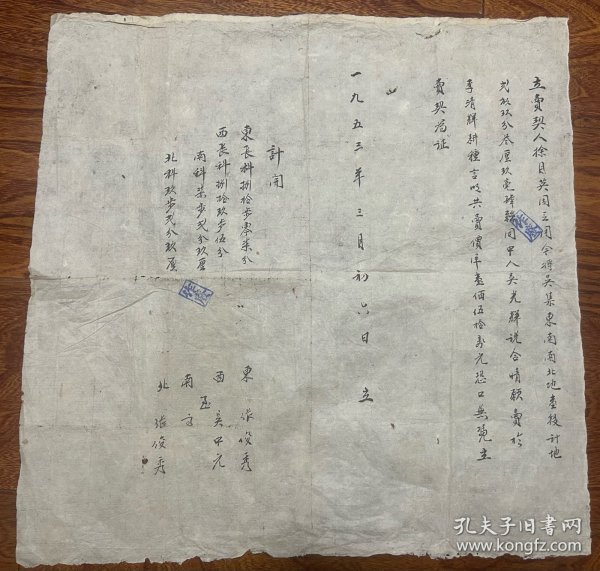 立賣契人徐自英因立司今將吳集東南南北地壹段計地
弍畝玖分叁厘玖毫 同中人吳光輝说合情願賣於
李清輝耕種言明共賣價洋壹佰伍拾 元恐口無凭立
賣契为证
一九五三年三月初六日 立
計開
東長科捌拾步零柒分
西長科捌拾玖步伍分
南科柒步弍分玖厘
北科玖步弍分玖厘
東 張俊秀
西 吳中元
南
至
北 張俊秀
孔夫子旧书网
www.kongfz.com